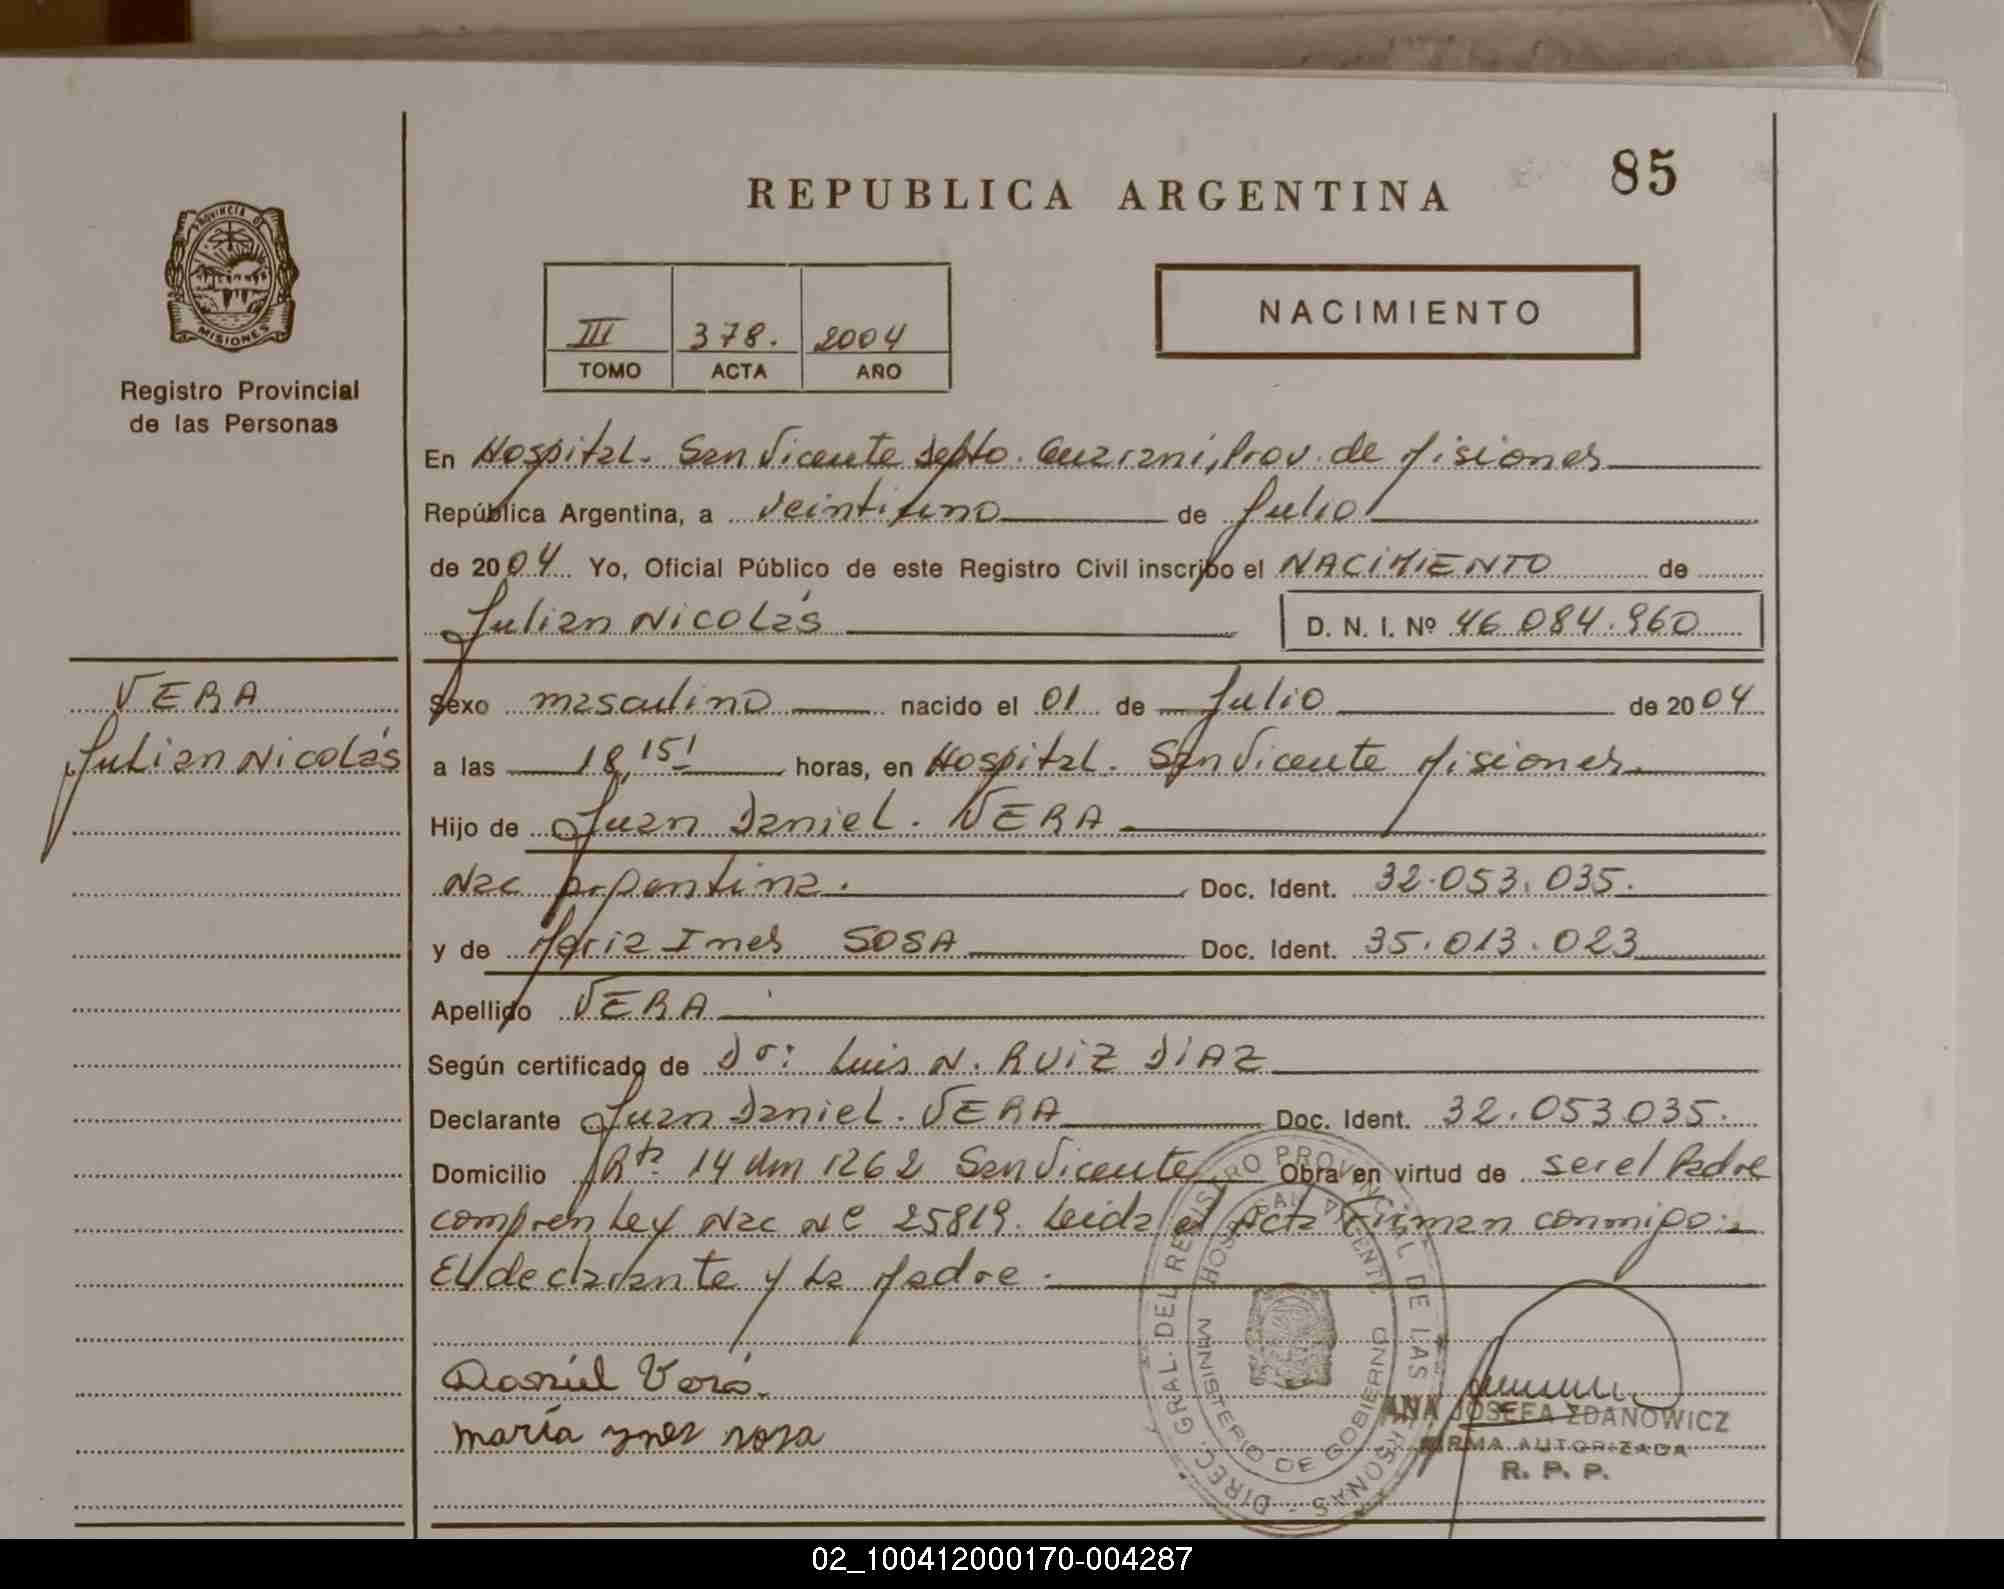 85
REPUBLICA ARGENTINA
PROVINCIA DE
MISIONES
Registro Provincial
de las Personas
NACIMIENTO
III 378. 2004
TOMO ACTA AÑO
En Hospital. San Vicente Depto. Guarani, Prov. de Misiones
República Argentina, a veintiuno de Julio
de 2004 Yo, Oficial Público de este Registro Civil inscribo el NACIMIENTO de
Julian Nicolás D. N. I. Nº 46.084.960
VERA
Julian Nicolás
Sexo masculino nacido el 01 de Julio de 2004
a las 18,15' horas, en Hospital. San Vicente Misiones.
Hijo de Juan Daniel. VERA
Nac Argentina. Doc. Ident. 32.053.035.
y de Maria Ines SOSA Doc. Ident. 35.013.023
Apellido VERA
Según certificado de Dr: Luis N. RUIZ DIAZ
Declarante Juan Daniel. VERA Doc. Ident. 32.053.035.
Domicilio Rta 14 Km 1262 San Vicente Obra en virtud de ser el Padre
compren Ley Nac Nº 25819. Leida el Acta Firman conmigo:
El declarante y La Madre.
Daniel Vera.
maría ynes sosa
DIREC. GRAL. DEL REGISTRO PROVINCIAL DE LAS PERSONAS
HOSPITAL SAN VICENTE
MINISTERIO DE GOBIERNO
ANA JOSEFA ZDANOWICZ
FIRMA AUTORIZADA
R. P. P.
02_100412000170-004287